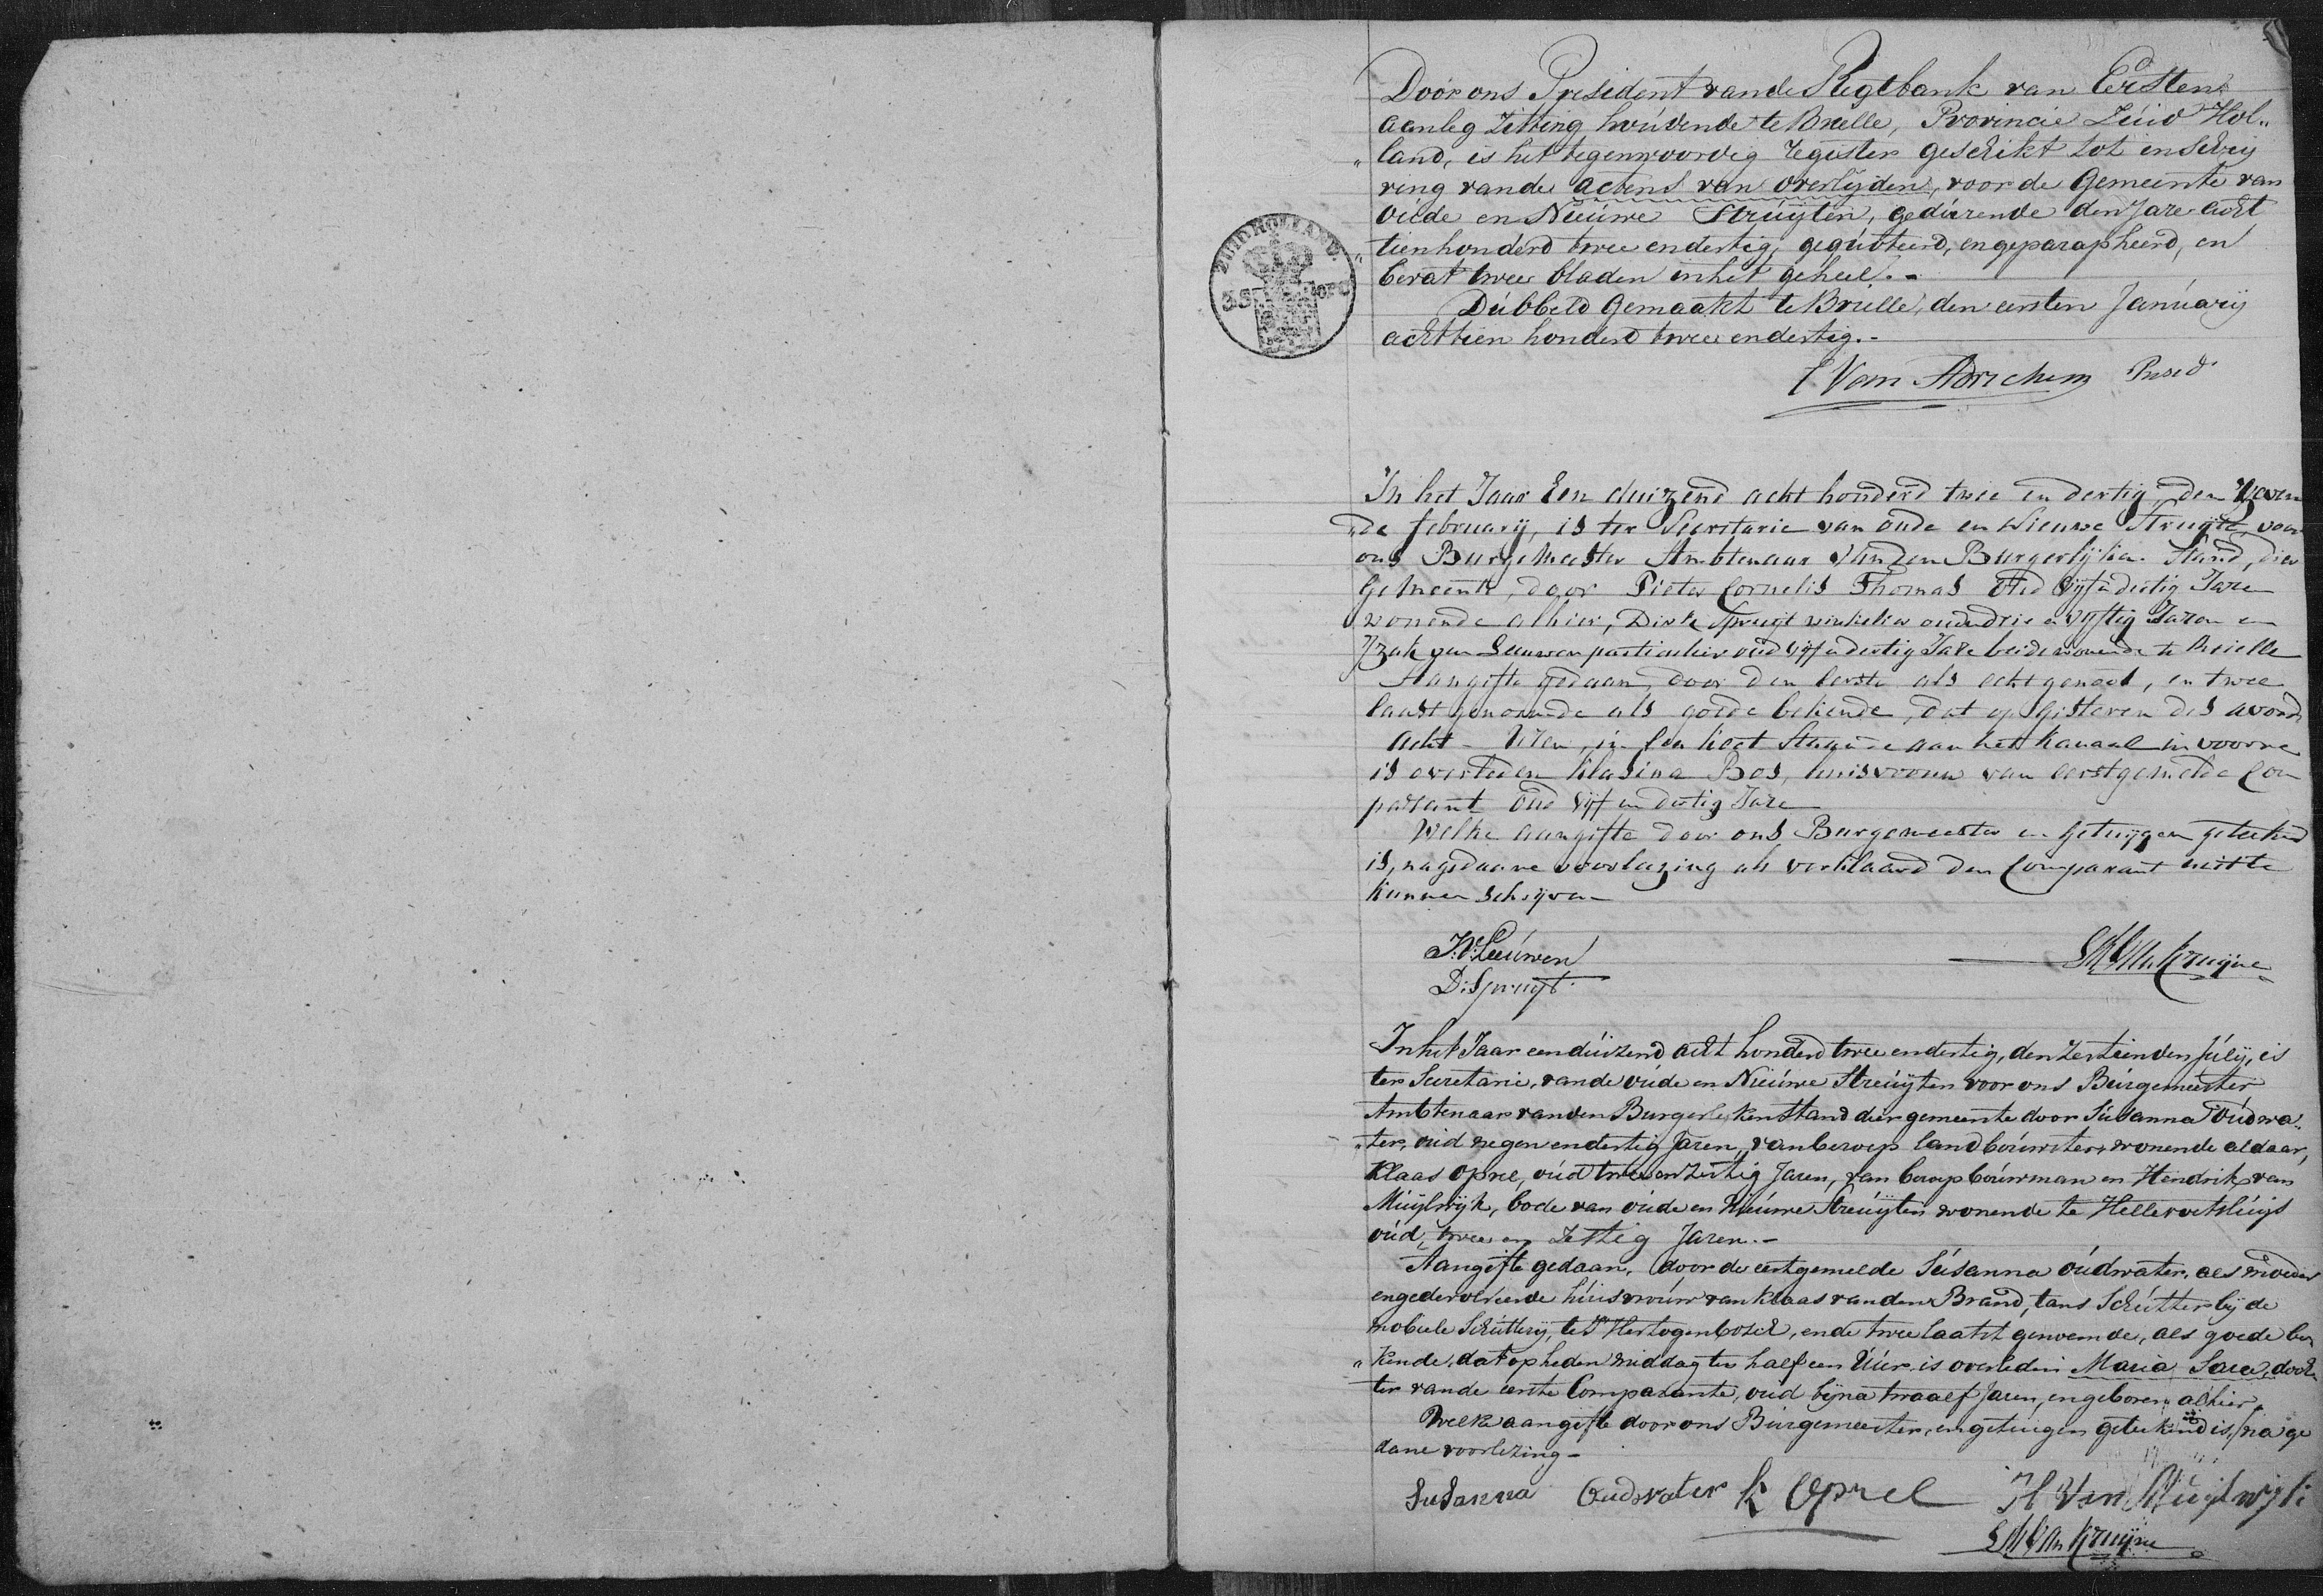 Door ons President van de Regtbank van Eersten
aanleg Zitting houdende te Brielle, Provincie Zuid Hol„
„land, is het tegenwoordig register geschikt tot inschrij
ving van de actens van overlijden, voor de Gemeente van
Oude en Nieuwe Struijten, gedurende den Jare acht
„tienhonderd twee en dertig, gequoteerd, en geparapheerd, en
bevat twee bladen in het geheel.-
Dubbeld Gemaakt te Brielle, den eersten Januarij
achttien honderd twee en dertig.-
Van Adrichem Presd
ZUID HOLLAND
In het Jaar Een duizend acht honderd twee en dertig, den Zeven
„de february, is ter Secretarie van oude en Nieuwe Struijte, voor
ons Burgemeester Ambtenaar Van den Burgerlijken Stand, dier
Gemeente, door Pieter Cornelis Thomas Oud Vijf dertig Jare
wonende alhier, Dirk Spruijt winkelier oud drie en Vijftig Jaren en
Izak van Leeuwen particulier oud vijf dertig Jare beide wonende te Brielle
Aangifte gedaan, door den Eerste als echtgenoot, en twee
laast genoemde als goede bekende, dat op gisteren des avonds
Acht Uren, in een aan het Kanaal in voorne
is overleden Klasina Bos, huisvrouw van eerstgemelde Com
parant Oud Vijf en dertig Jare
Welke aangifte door ons Burgemeester en getuijgen getekend
is, na gedaane voorlezing als verklaard den Comparant niet te
kunnen schrijven
J.V. Leeuwen
D: Spruijt
Van Kruijne
In het Jaar een duizend acht honderd twee en dertig, den Zestienden July, is
ter Secretarie, van de oude en Nieuwe Struijten voor ons Burgemeester
Ambtenaar van den Burgerlijken Stand dier gemeente door Susanna Oudwa„
„ter, oud negen en dertig Jaren, van beroep landbouwster, wonende aldaar,
Klaas Oprel, oud twee en zestig Jaren, van beroep bouwman en Hendrik van
Muijlwijk, bode van oude en Nieuwe Struijten wonende te Hellevoetsluijs
oud, twee en Zestig Jaren.-
Aangifte gedaan, door de eerstgemelde Susanna Oudwater, als moeder
en huisvrouw van Klaas van den Brand, tans Schutter bij de
mobiele Schutterij, te S' Hertogenbosch, en de twee laatst genoemde, als goede be„
„kende, dat op heden middag ten half een Uur is overleden Maria Sara, doch
ter van de eerste Comparante, oud bijna twaalf Jaren, en geboren alhier.
Welke aangifte door ons Burgemeester, en getuigen getekend is, na ge
dane voorlezing-
Susanna Oudwater K Oprel H Van Muijlwijk
Van Kruijne